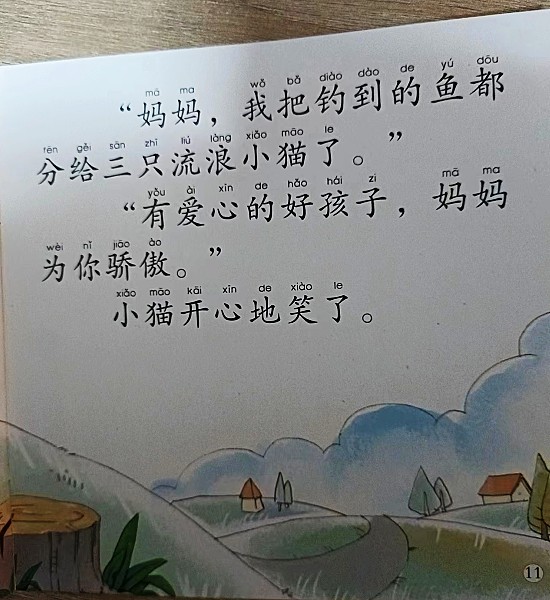 mā ma wǒ bǎ diào dào de yú dōu
“妈妈，我把钓到的鱼都
fēn gěi sān zhī liú làng xiǎo māo le
分给三只流浪小猫了。”
yǒu ài xīn de hǎo hái zi mā ma
“有爱心的好孩子，妈妈
wèi nǐ jiāo ào
为你骄傲。”
xiǎo māo kāi xīn de xiào le
小猫开心地笑了。
11